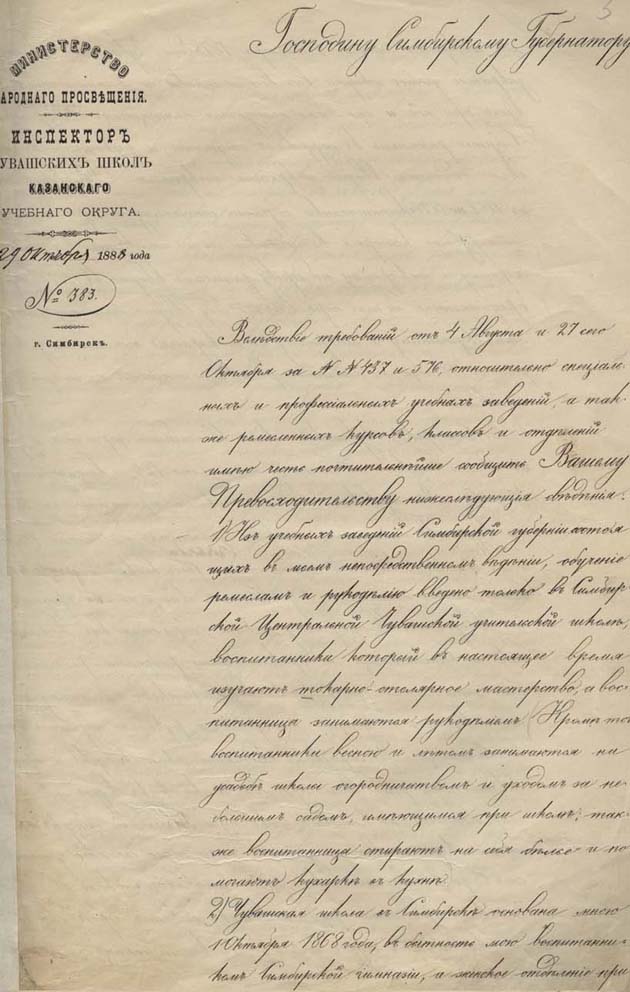 Господину Симбирскому Губернатору
МИНИСТЕРСТВО
АРОДНАГО ПРОСВѢЩЕНІЯ.
ИНСПЕКТОРЪ
УВАШСКИХЪ ШКОЛЪ
КАЗАНСКАГО
УЧЕБНАГО ОКРУГА.
29 Октября 1888 года
№ 383.
г. Симбирскъ.
Вслѣдствіе требованій отъ 4 Августа и 27 сего
Октября за N N 437 и 576, относительно спеціаль-
ныхъ и профессіальныхъ учебныхъ заведеній, а так-
же ремесленныхъ курсовъ, классовъ и отдѣленій
имѣю честь почтительнѣйше сообщить Вашему
Превосходительству нижеслѣдующія свѣдѣнія:
1) Изъ учебныхъ заведеній Симбирской губерніи состоя
щихъ въ моемъ непосредственномъ вѣдѣніи, обученіе
ремесламъ и рукодѣлію введено только въ Симбир
ской Центральной Чувашской учительской школѣ,
воспитанники которой въ настоящее время
изучаютъ токарно-столярное мастерство, а вос-
питанницы занимаются рукодѣльемъ (Кромѣ то
воспитанники весною и лѣтомъ занимаются на
усадьбѣ школы огородничествомъ и уходомъ за не-
большимъ садомъ, имѣющимся при школѣ; так-
же воспитанницы стираютъ на себя бѣлье и по
могаютъ кухаркѣ въ кухнѣ.
2) Чувашская школа въ Симбирскѣ основана мною
1 Октября 1868 года, въ бытность мою воспитанни-
комъ Симбирской гимназіи, а женское отдѣленіе при